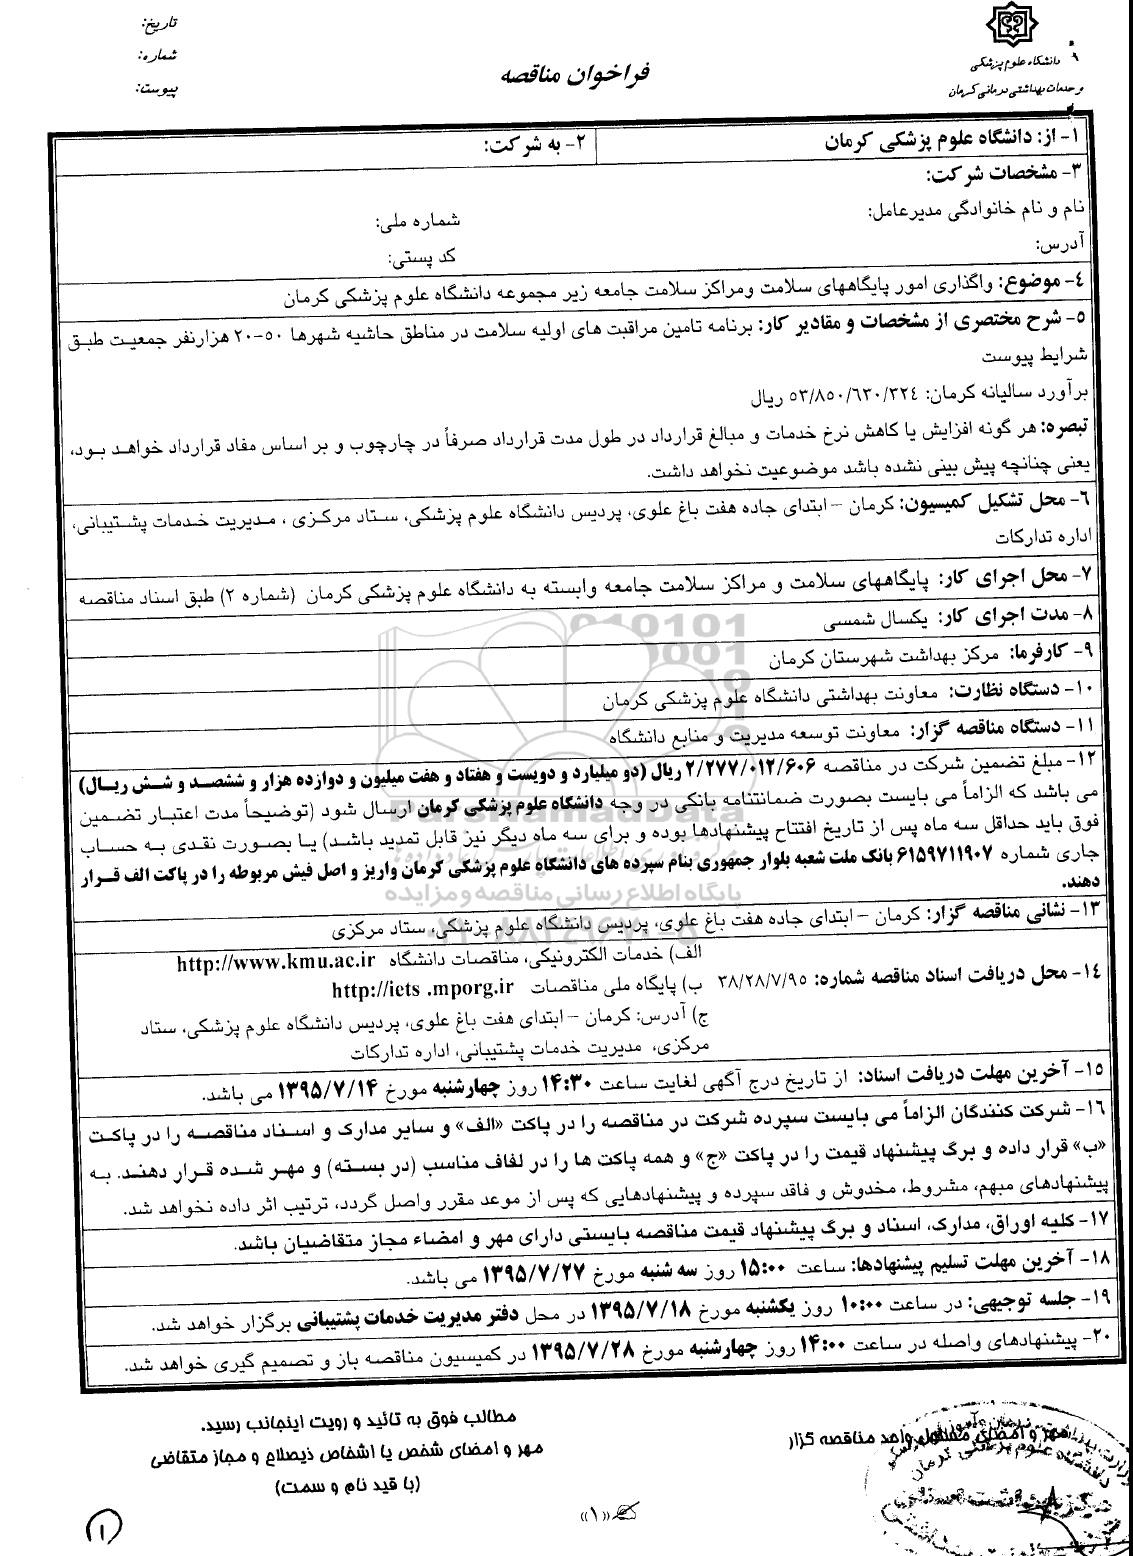 دانشگاه علوم پزشکی
و خدمات بهداشتی درمانی کرمان
فراخوان مناقصه
تاریخ:
شماره:
پیوست:
۱- از: دانشگاه علوم پزشکی کرمان
۲- به شرکت:
۳- مشخصات شرکت:
نام و نام خانوادگی مدیرعامل:
شماره ملی:
آدرس:
کد پستی:
۴- موضوع: واگذاری امور پایگاههای سلامت ومراکز سلامت جامعه زیر مجموعه دانشگاه علوم پزشکی کرمان
۵- شرح مختصری از مشخصات و مقادیر کار: برنامه تامین مراقبت های اولیه سلامت در مناطق حاشیه شهرها ۵۰-۲۰ هزارنفر جمعیت طبق
شرایط پیوست
برآورد سالیانه کرمان: ۵۳/۸۵۰/۶۳۰/۳۲۴ ریال
تبصره: هر گونه افزایش یا کاهش نرخ خدمات و مبالغ قرارداد در طول مدت قرارداد صرفاً در چارچوب و بر اساس مفاد قرارداد خواهد بود،
یعنی چنانچه پیش بینی نشده باشد موضوعیت نخواهد داشت.
۶- محل تشکیل کمیسیون: کرمان – ابتدای جاده هفت باغ علوی، پردیس دانشگاه علوم پزشکی، ستاد مرکزی ، مدیریت خدمات پشتیبانی،
اداره تدارکات
۷- محل اجرای کار: پایگاههای سلامت و مراکز سلامت جامعه وابسته به دانشگاه علوم پزشکی کرمان (شماره ۲) طبق اسناد مناقصه
۸- مدت اجرای کار: یکسال شمسی
۹- کارفرما: مرکز بهداشت شهرستان کرمان
۱۰- دستگاه نظارت: معاونت بهداشتی دانشگاه علوم پزشکی کرمان
۱۱- دستگاه مناقصه گزار: معاونت توسعه مدیریت و منابع دانشگاه
۱۲- مبلغ تضمین شرکت در مناقصه ۲/۲۷۷/۰۱۲/۶۰۶ ریال (دو میلیارد و دویست و هفتاد و هفت میلیون و دوازده هزار و ششصد و شش ریال)
می باشد که الزاماً می بایست بصورت ضمانتنامه بانکی در وجه دانشگاه علوم پزشکی کرمان ارسال شود (توضیحاً مدت اعتبار تضمین
فوق باید حداقل سه ماه پس از تاریخ افتتاح پیشنهادها بوده و برای سه ماه دیگر نیز قابل تمدید باشد) یا بصورت نقدی به حساب
جاری شماره ۶۱۵۹۷۱۱۹۰۷ بانک ملت شعبه بلوار جمهوری بنام سپرده های دانشگاه علوم پزشکی کرمان واریز و اصل فیش مربوطه را در پاکت الف قرار
دهند.
۱۳- نشانی مناقصه گزار: کرمان – ابتدای جاده هفت باغ علوی، پردیس دانشگاه علوم پزشکی، ستاد مرکزی
۱۴- محل دریافت اسناد مناقصه شماره: ۳۸/۲۸/۷/۹۵
الف) خدمات الکترونیکی، مناقصات دانشگاه http://www.kmu.ac.ir
ب) پایگاه ملی مناقصات http://iets .mporg.ir
ج) آدرس: کرمان – ابتدای هفت باغ علوی، پردیس دانشگاه علوم پزشکی، ستاد
مرکزی، مدیریت خدمات پشتیبانی، اداره تدارکات
۱۵- آخرین مهلت دریافت اسناد: از تاریخ درج آگهی لغایت ساعت ۱۴:۳۰ روز چهارشنبه مورخ ۱۳۹۵/۷/۱۴ می باشد.
۱۶- شرکت کنندگان الزاماً می بایست سپرده شرکت در مناقصه را در پاکت «الف» و سایر مدارک و اسناد مناقصه را در پاکت
«ب» قرار داده و برگ پیشنهاد قیمت را در پاکت «ج» و همه پاکت ها را در لفاف مناسب (در بسته) و مهر شده قرار دهند. به
پیشنهادهای مبهم، مشروط، مخدوش و فاقد سپرده و پیشنهادهایی که پس از موعد مقرر واصل گردد، ترتیب اثر داده نخواهد شد.
۱۷- کلیه اوراق، مدارک، اسناد و برگ پیشنهاد قیمت مناقصه بایستی دارای مهر و امضاء مجاز متقاضیان باشد.
۱۸- آخرین مهلت تسلیم پیشنهادها: ساعت ۱۵:۰۰ روز سه شنبه مورخ ۱۳۹۵/۷/۲۷ می باشد.
۱۹- جلسه توجیهی: در ساعت ۱۰:۰۰ روز یکشنبه مورخ ۱۳۹۵/۷/۱۸ در محل دفتر مدیریت خدمات پشتیبانی برگزار خواهد شد.
۲۰- پیشنهادهای واصله در ساعت ۱۴:۰۰ روز چهارشنبه مورخ ۱۳۹۵/۷/۲۸ در کمیسیون مناقصه باز و تصمیم گیری خواهد شد.
مهر و امضای مسئول واحد مناقصه گزار
مطالب فوق به تائید و رویت اینجانب رسید.
مهر و امضای شخص یا اشخاص ذیصلاح و مجاز متقاضی
(با قید نام و سمت)
«۱»
۱
پایگاه اطلاع رسانی مناقصه و مزایده